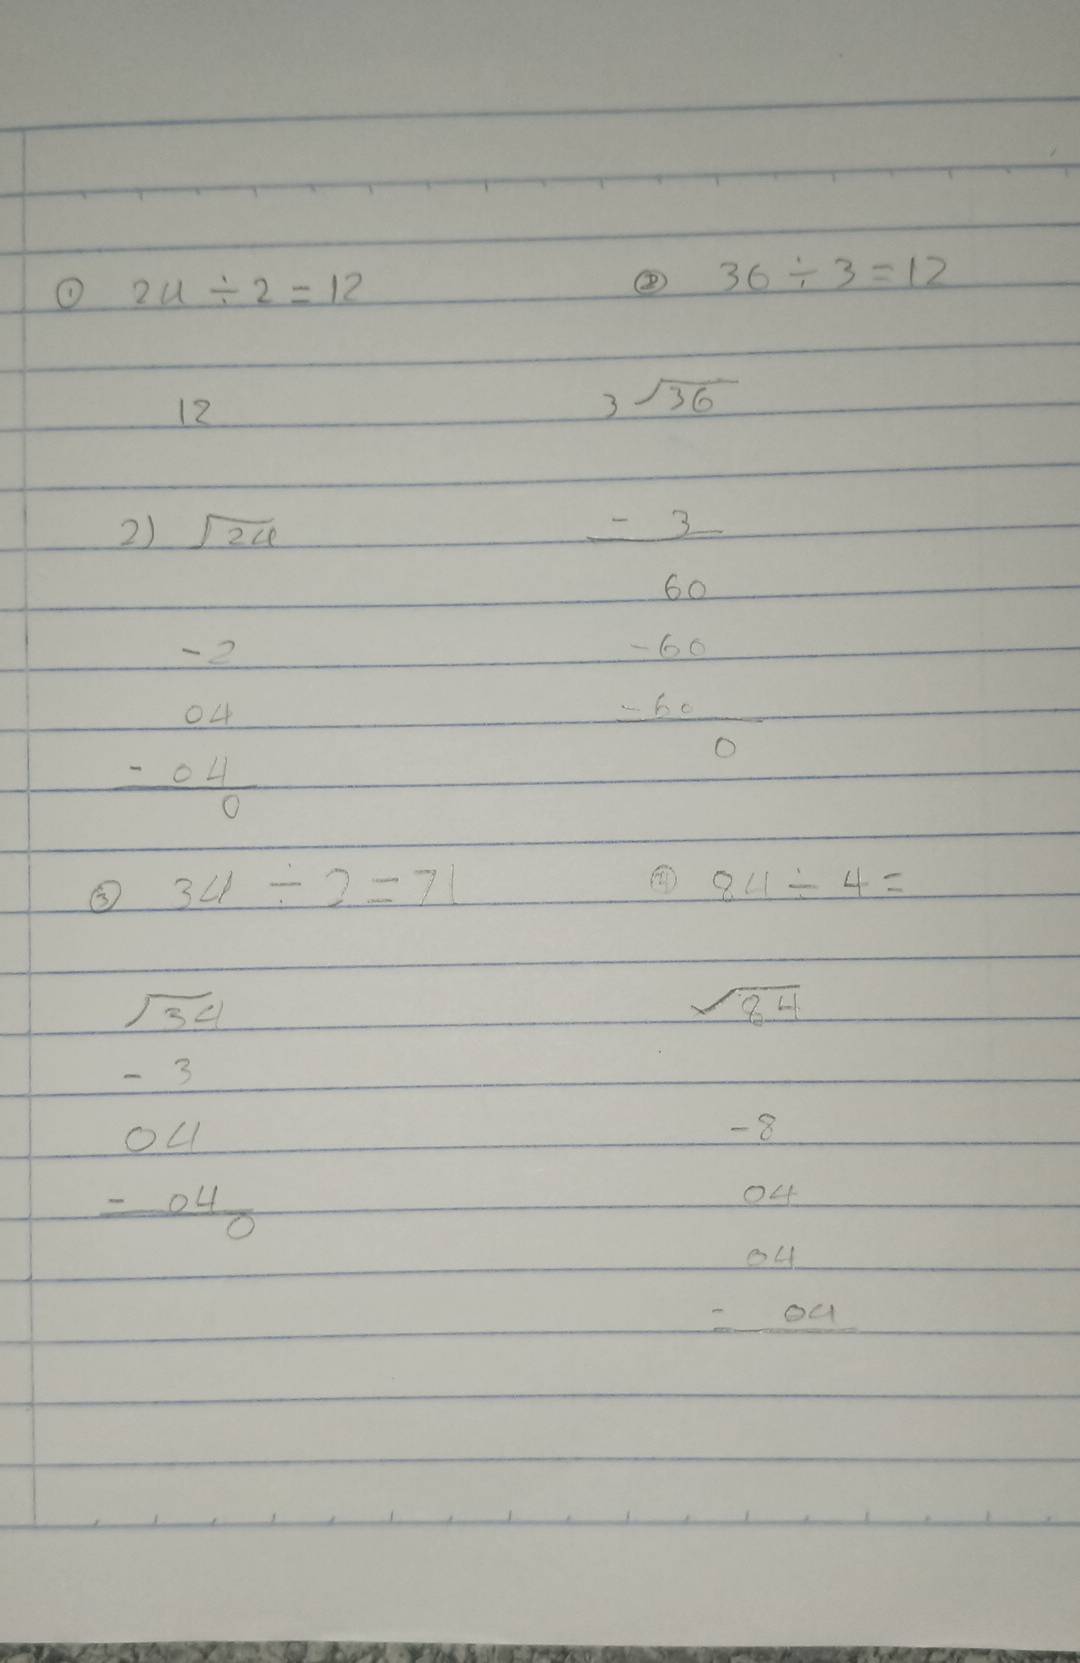 ① 24 ÷ 2 = 12
12
2) √24
-2
04
- 04
0
② 36 ÷ 3 = 12
3 √36
- 3
60
-60
-60
0
③ 34 ÷ 2 = 71
√34
- 3
04
- 04
0
④ 84 ÷ 4 =
√84
-8
04
04
- 04